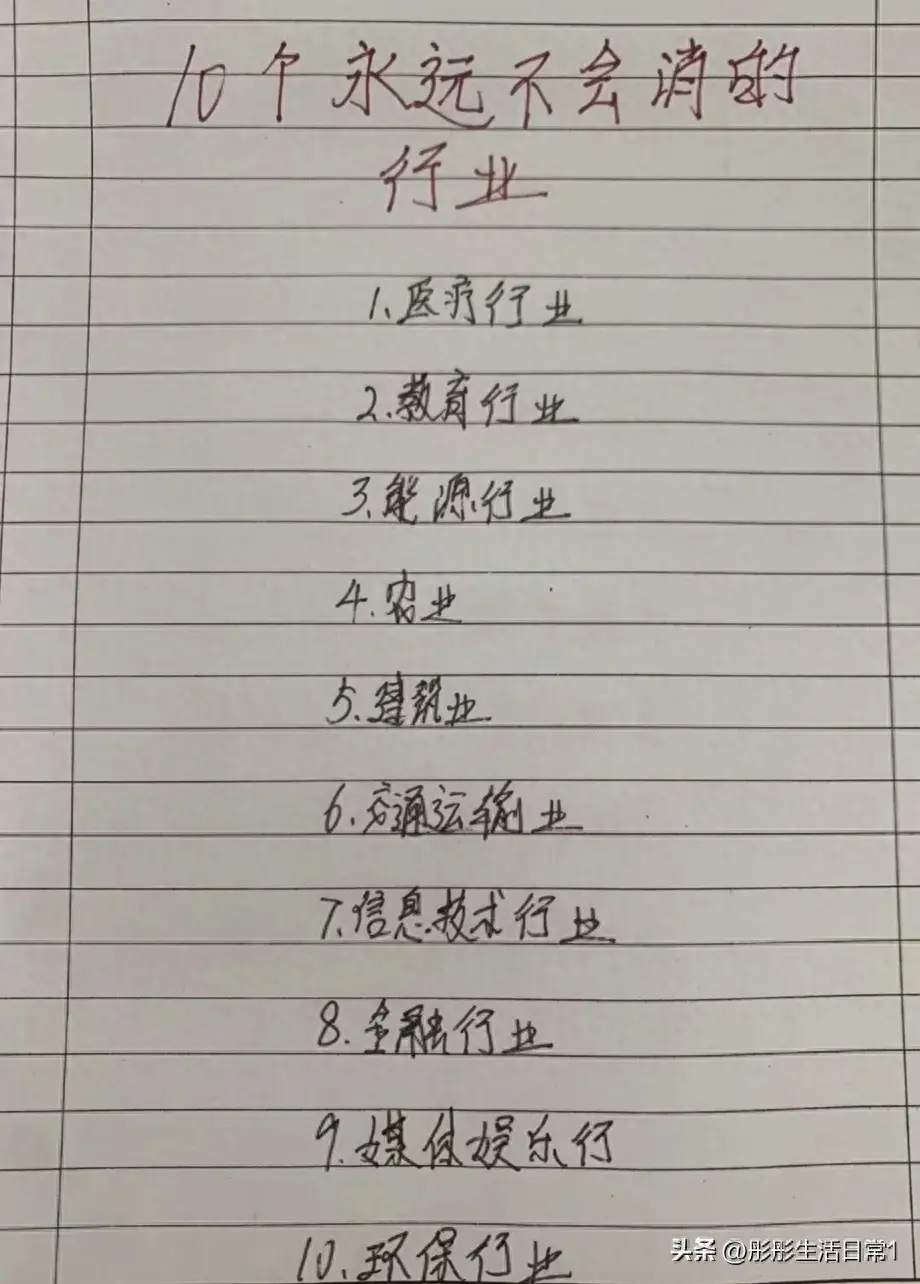 10个永远不会消的
行业
1、医疗行业
2、教育行业
3、能源行业
4、农业
5、建筑业
6、交通运输业
7、信息技术行业
8、金融行业
9、媒体娱乐行
10、环保行业
头条 @彤彤生活日常1